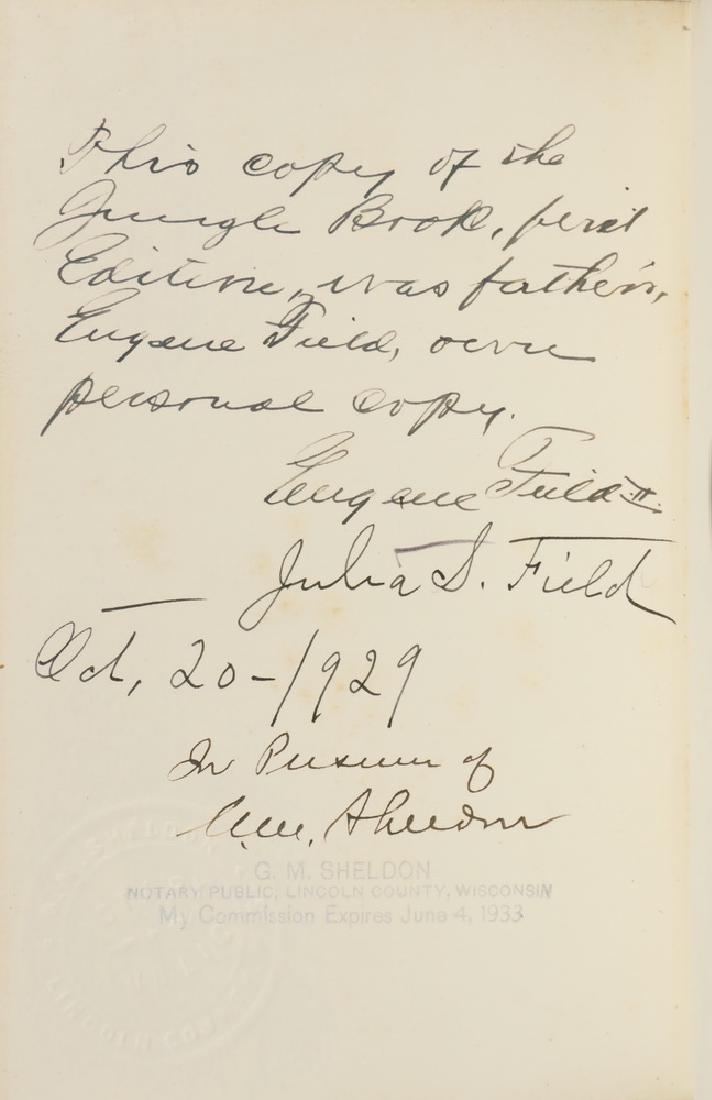 This copy of the
Jungle Book, first
Edition, was father's,
Eugene Field, own
personal copy.
Eugene Field II.
Julia S. Field
Oct, 20-1929
In Presence of
G. M. Sheldon
G. M. SHELDON
NOTARY PUBLIC, LINCOLN COUNTY, WISCONSIN
My Commission Expires June 4, 1933
SHELDON
LINCOLN COUN